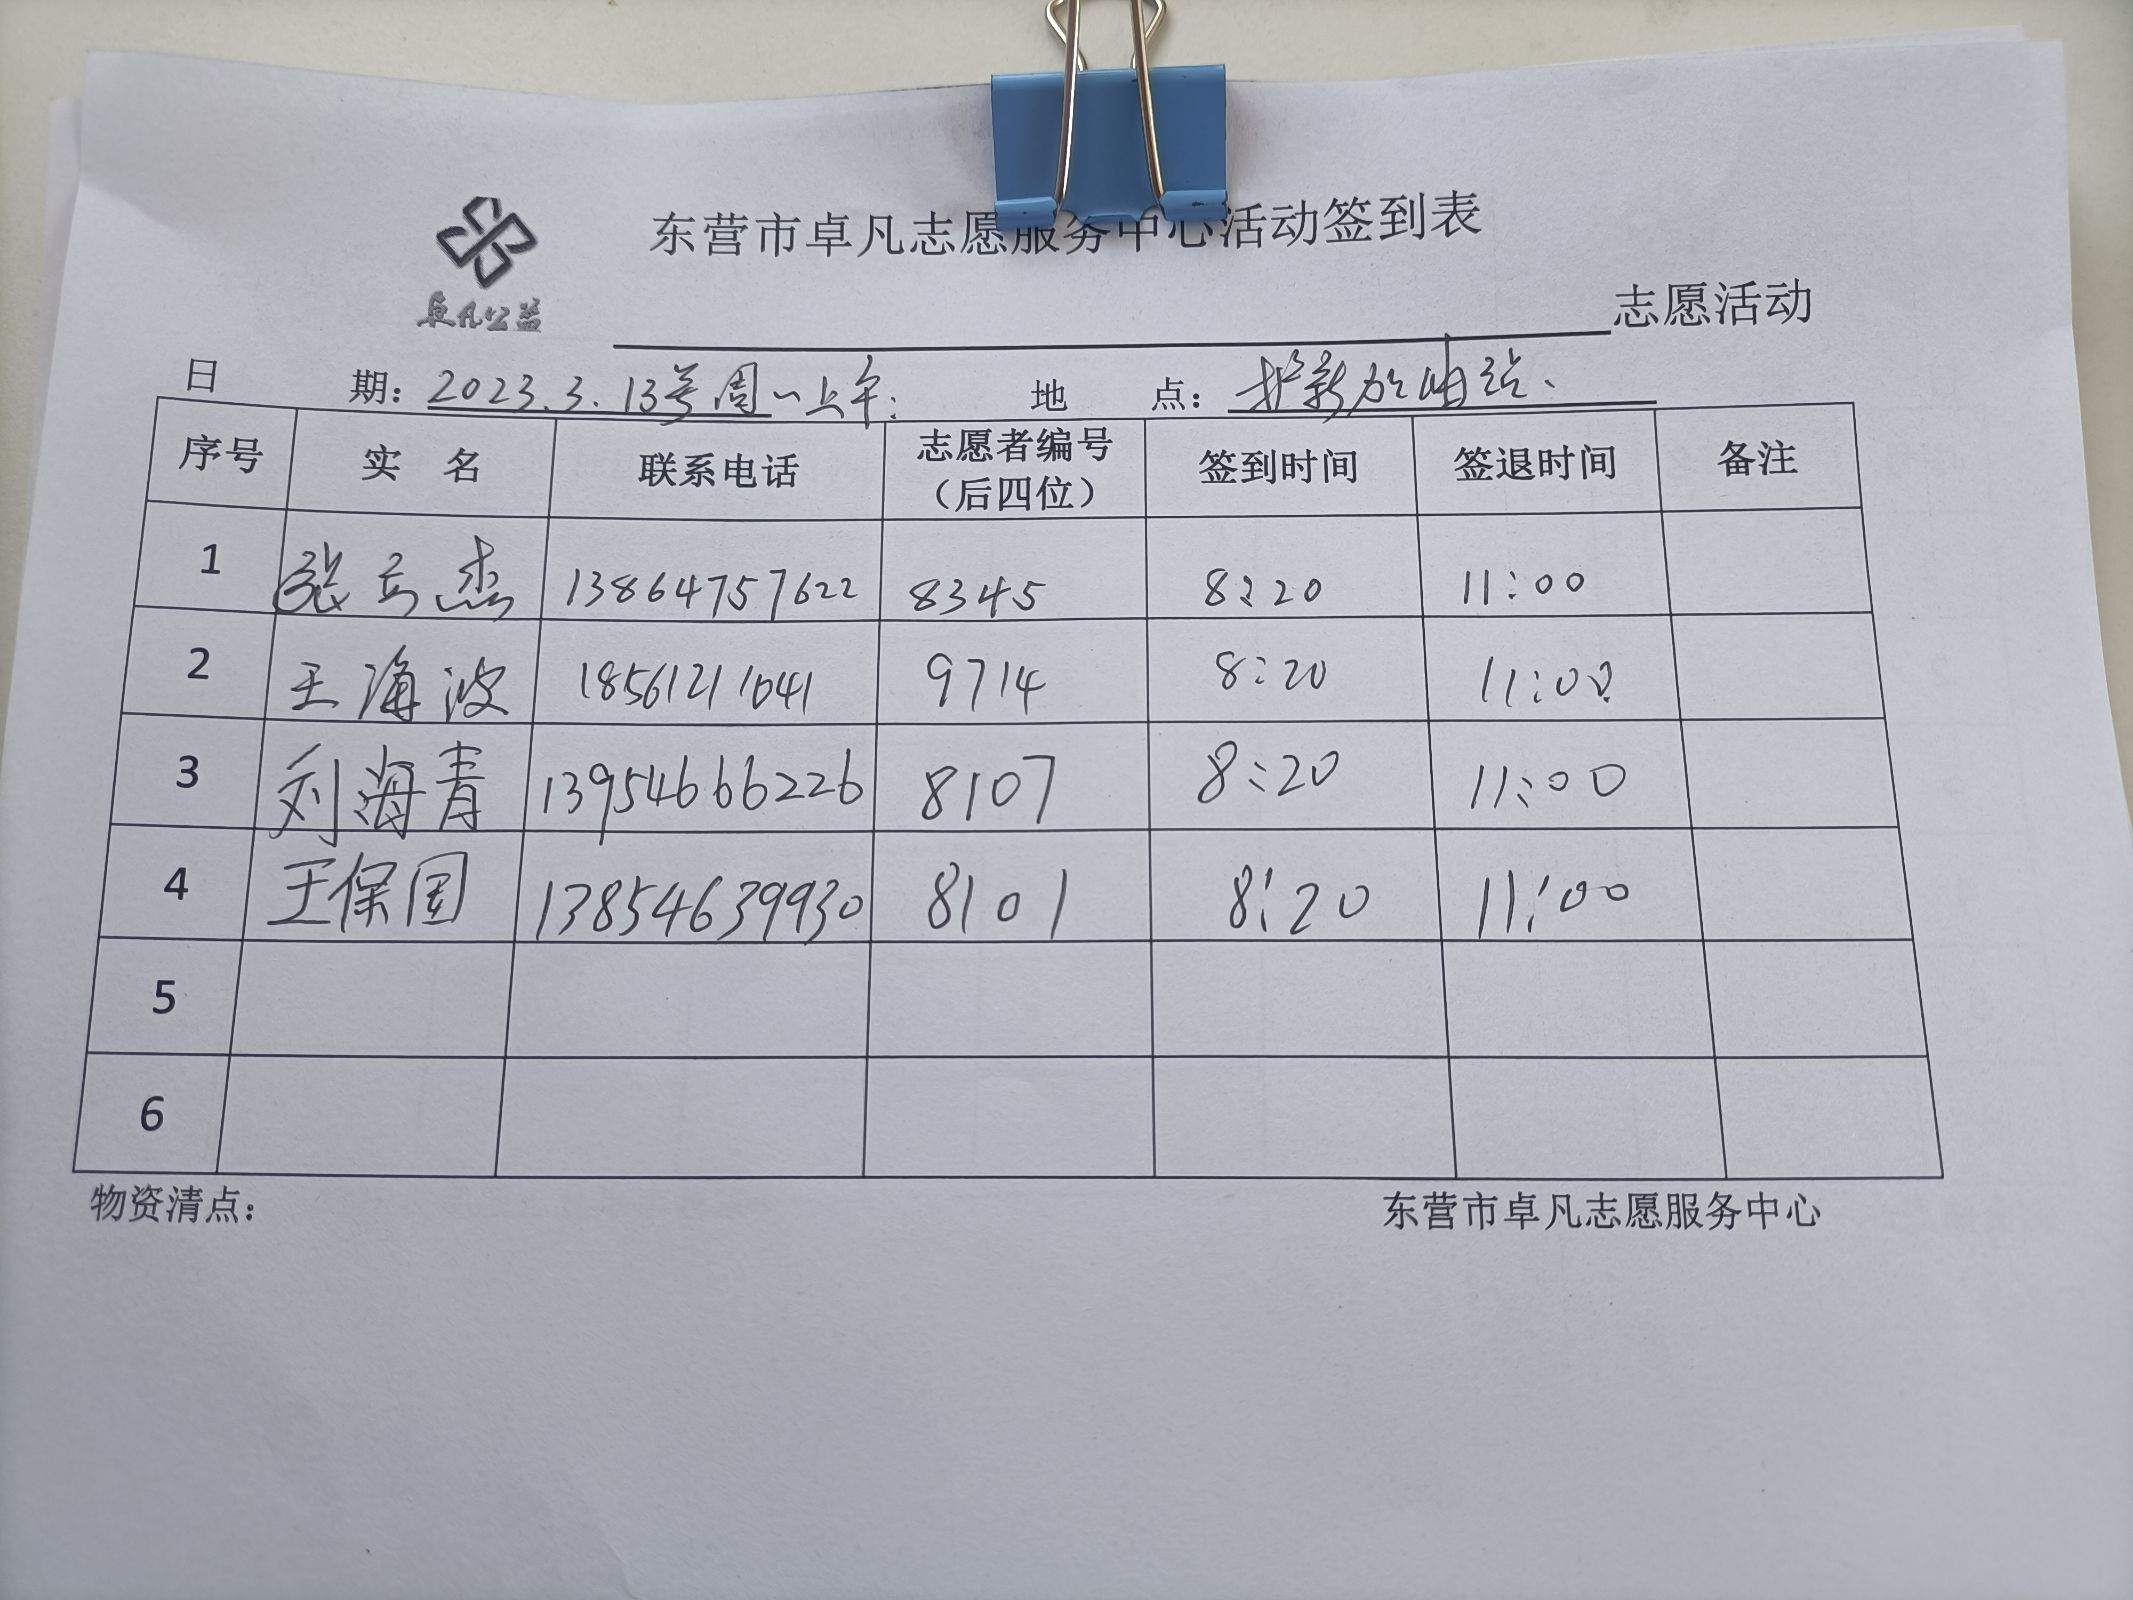 东营市卓凡志愿服务中心活动签到表
卓凡公益
志愿活动
日 期：2023.3.13号周一上午. 地 点：加油站.
序号 实 名 联系电话 志愿者编号（后四位） 签到时间 签退时间 备注
1 张立杰 13864757622 8345 8:20 11:00
2 王海波 18561211041 9714 8:20 11:00
3 刘海青 13954666226 8107 8:20 11:00
4 王保国 13854639930 8101 8:20 11:00
5
6
物资清点： 东营市卓凡志愿服务中心